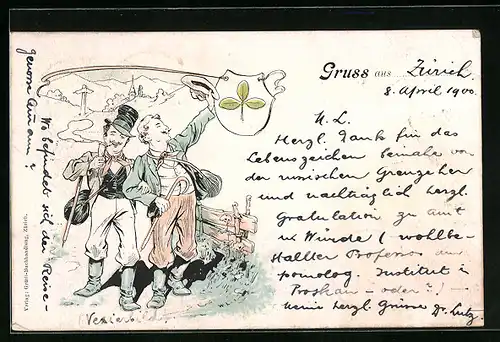 Gruss aus Zürich
8. April 1900.
M. L.
Herzl. Dank für das
Lebenszeichen beinahe von
der russischen Grenze her
und nachträglich herzl.
Gratulation zu Amt
u. Würde (wohlbe-
stallter Professor am
pomolog. Institut in
Proskau - oder?) -
herzl. Grüsse Dr. Lutz.
Wo befindet sich der Reise-
genosse
Vexierbild.